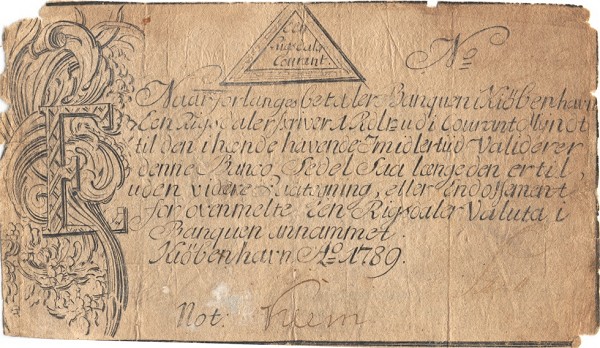 Een
Rigsdaler
Courant
No
E.
Naar forlanges betaler Banquen i Kiöbenhavn
Een Rigsdaler skriver 1 Rdlr. ud i Courant Myndt
til den i hænde havende Imidlertiid Validerer
denne Banco Sedel Saa længe den er til,
uden videre Paategning, eller Endossement
for ovenmelte Een Rigsdaler Valuta i
Banquen annammet.
Kiöbenhavn Ao. 1789.
Not: